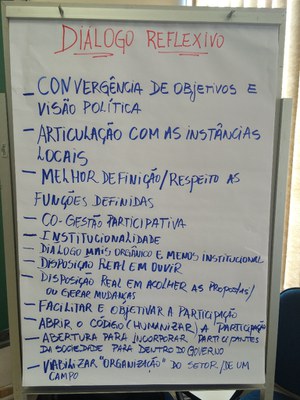 DIALOGO REFLEXIVO
- CONVERGÊNCIA DE Objetivos E
VISÃO POLÍTICA
- ARTICULAÇÃO COM AS INSTÂNCIAS
LOCAIS
- MELHOR DEFINIÇÃO/RESPEITO AS
FUNÇÕES DEFINIDAS
- CO-GESTÃO PARTICIPATIVA
- INSTITUCIONALIDADE
- DIALOGO MAIS ORGÂNICO E MENOS INSTITUCIONAL
- DISPOSIÇÃO REAL EM OUVIR
- DISPOSIÇÃO REAL EM ACOLHER AS PROPOSTAS/
OU GERAR MUDANÇAS
- FACILITAR E OBJETIVAR A PARTICIPAÇÃO
- ABRIR O CÓDIGO (HUMANIZAR) A PARTICIPAÇÃO
- ABERTURA PARA INCORPORAR PARTICIPANTES
DA SOCIEDADE PARA DENTRO DO GOVERNO
- VIABILIZAR "ORGANIZAÇÃO" DO SETOR/DE UM
CAMPO